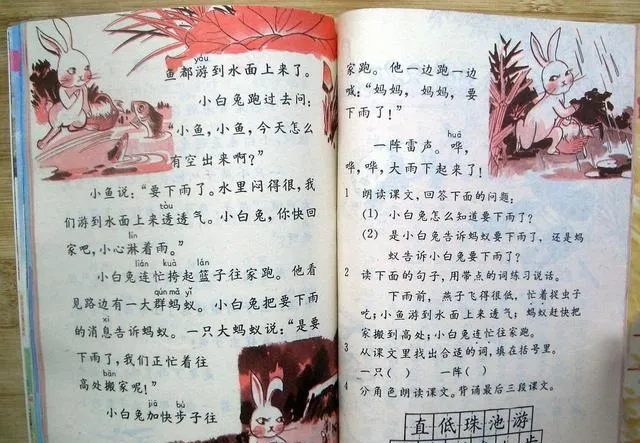 yóu
鱼都游到水面上来了。
小白兔跑过去问：
“小鱼，小鱼，今天怎么
有空出来啊？”
小鱼说：“要下雨了。水里闷得很，我
tòu
们游到水面上来透透气。小白兔，你快回
lín
家吧，小心淋着雨。”
lián kuà lán
小白兔连忙挎起篮子往家跑。他看
qún mǎ yǐ
见路边有一大群蚂蚁。小白兔把要下雨
xi
的消息告诉蚂蚁。一只大蚂蚁说：“是要
下雨了，我们正忙着往
bān
高处搬家呢！”
jiā bù
小白兔加快步子往
家跑。他一边跑一边
喊：“妈妈，妈妈，要
下雨了！”
huā
一阵雷声。哗，
哗，哗，大雨下起来了！
1 朗读课文，回答下面的问题：
(1) 小白兔怎么知道要下雨了？
(2) 是小白兔告诉蚂蚁要下雨了，还是蚂
蚁告诉小白兔要下雨了？
2 读下面的句子，用带点的词练习说话。
下雨前，燕子飞得很低，忙着捉虫子
吃；小鱼游到水面上来透气；蚂蚁赶快把
家搬到高处；小白兔连忙往家跑。
3 从课文里找出合适的词，填在括号里。
一只( ) 一阵( )
4 分角色朗读课文。背诵最后三段课文。
直低珠池游